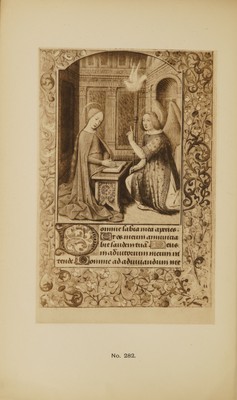 Domine labia mea aperies.
Et os meum annuncia
bit laudem tuã. Deus
in adiutorium meum in
tende Domine ad adiuuandum me
No. 283.